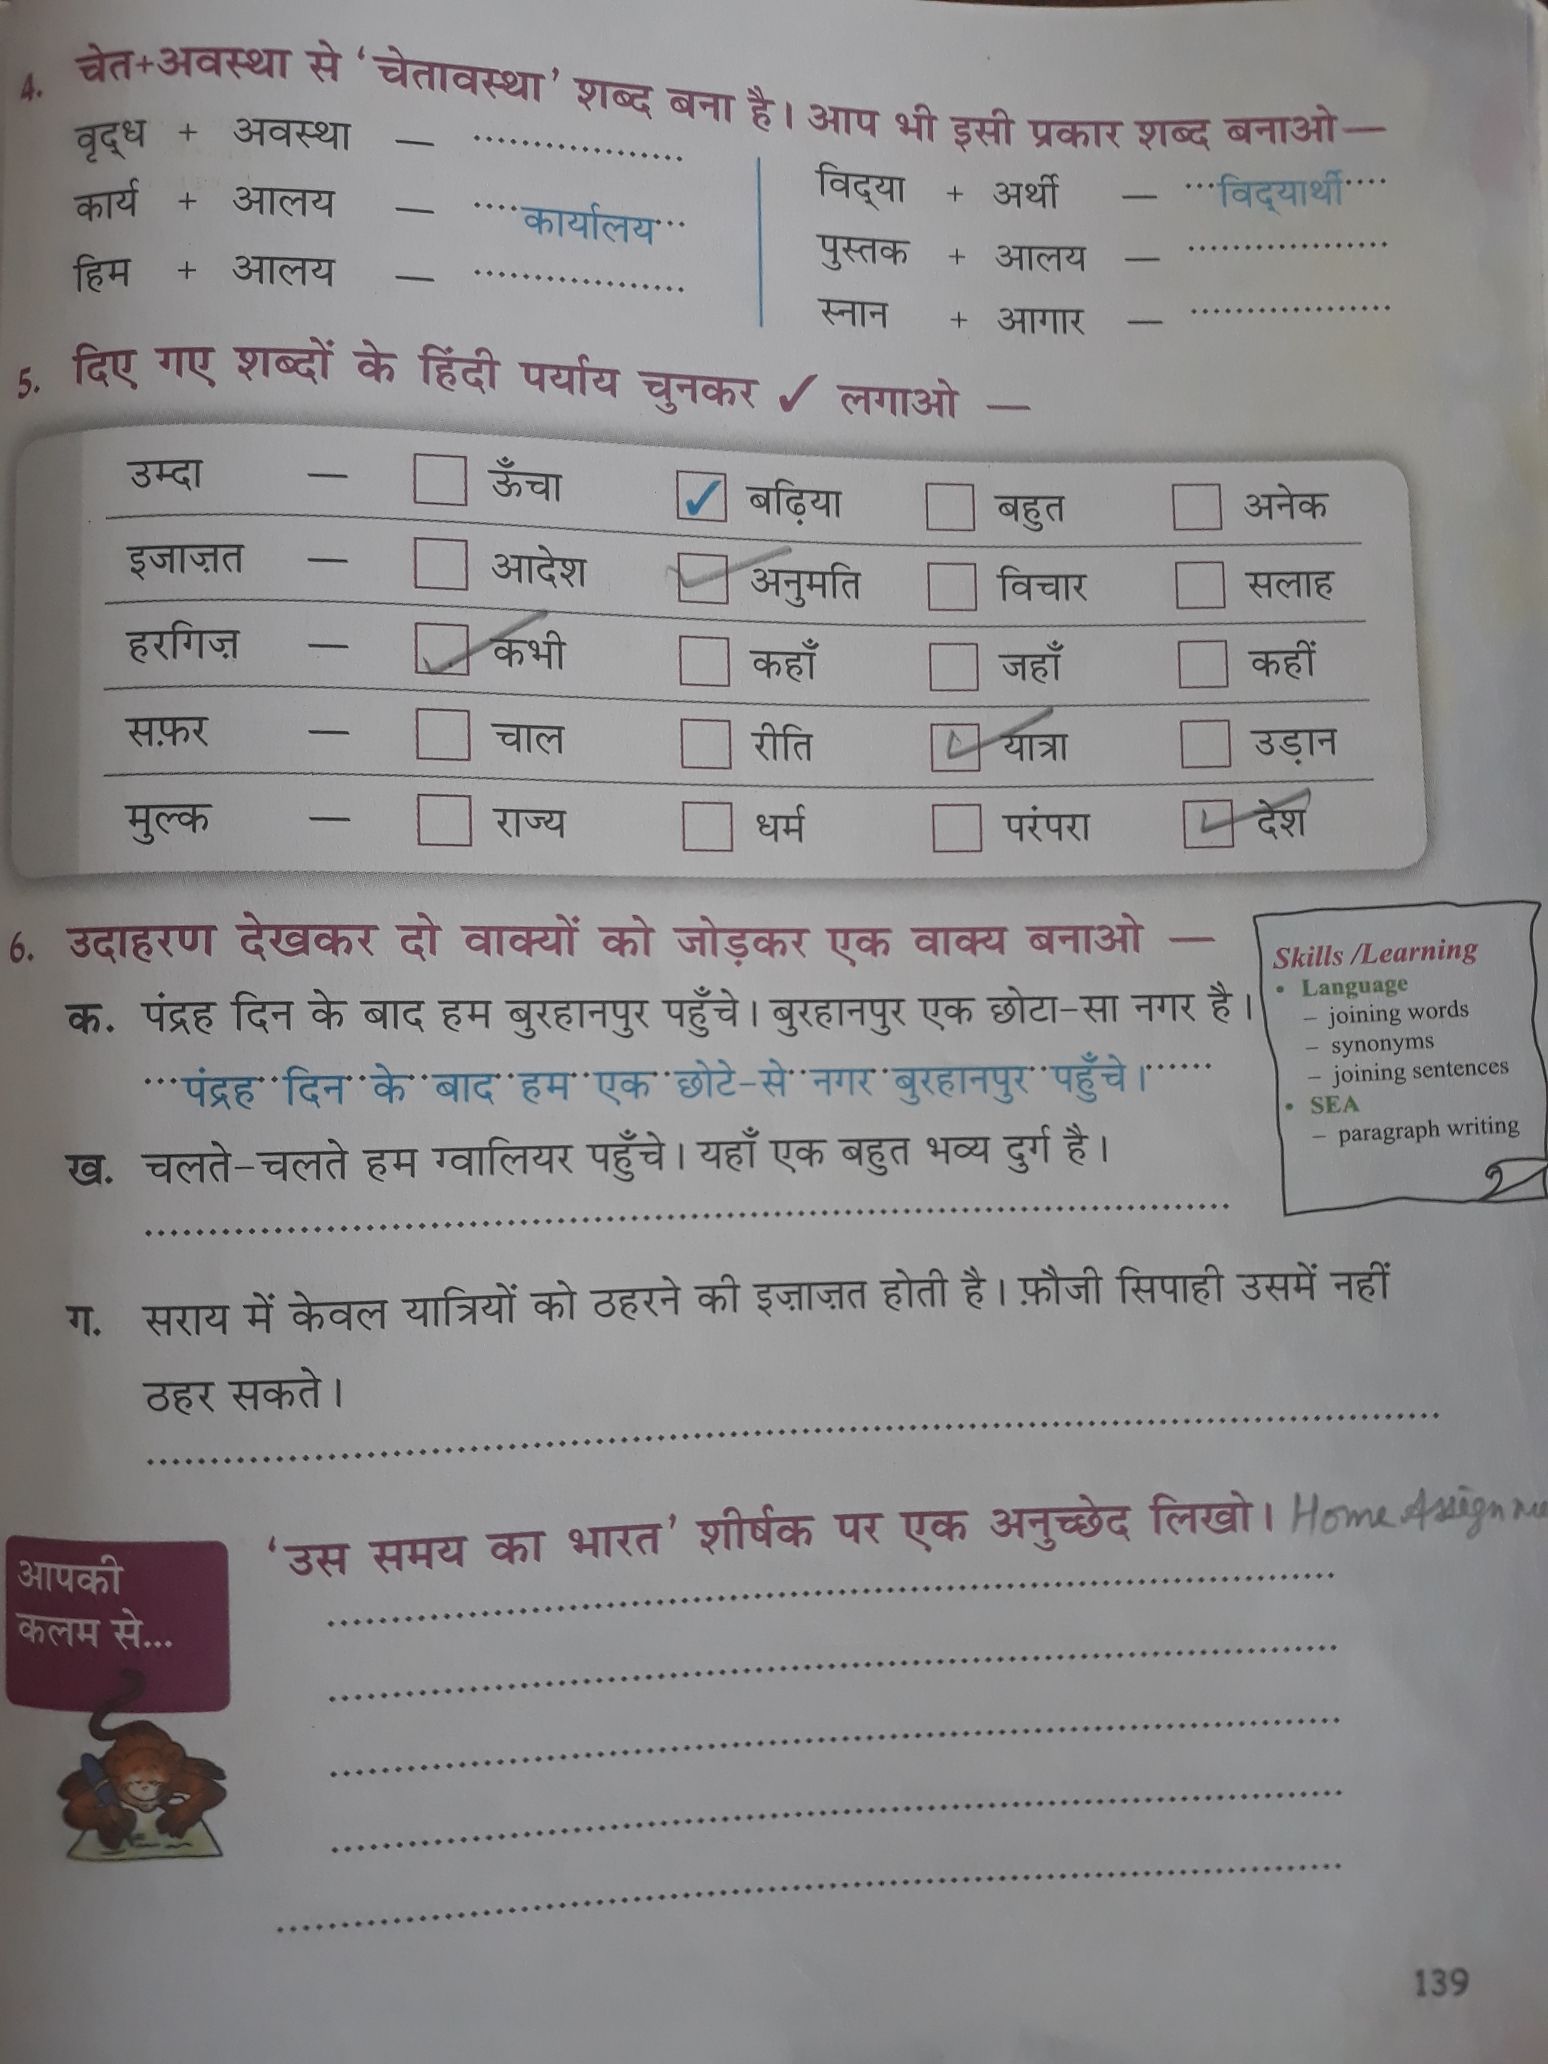 4. चेत+अवस्था से 'चेतावस्था' शब्द बना है। आप भी इसी प्रकार शब्द बनाओ—
वृद्ध + अवस्था —
कार्य + आलय — कार्यालय
हिम + आलय —
विद्या + अर्थी — विद्यार्थी
पुस्तक + आलय —
स्नान + आगार —
5. दिए गए शब्दों के हिंदी पर्याय चुनकर ✓ लगाओ —
उम्दा — ऊँचा ✓ बढ़िया बहुत अनेक
इजाज़त — आदेश ✓ अनुमति विचार सलाह
हरगिज़ — ✓ कभी कहाँ जहाँ कहीं
सफ़र — चाल रीति ✓ यात्रा उड़ान
मुल्क — राज्य धर्म परंपरा ✓ देश
6. उदाहरण देखकर दो वाक्यों को जोड़कर एक वाक्य बनाओ —
क. पंद्रह दिन के बाद हम बुरहानपुर पहुँचे। बुरहानपुर एक छोटा-सा नगर है।
पंद्रह दिन के बाद हम एक छोटे-से नगर बुरहानपुर पहुँचे।
ख. चलते-चलते हम ग्वालियर पहुँचे। यहाँ एक बहुत भव्य दुर्ग है।
ग. सराय में केवल यात्रियों को ठहरने की इज़ाज़त होती है। फ़ौजी सिपाही उसमें नहीं
ठहर सकते।
Skills /Learning
• Language
– joining words
– synonyms
– joining sentences
• SEA
– paragraph writing
आपकी
कलम से...
'उस समय का भारत' शीर्षक पर एक अनुच्छेद लिखो। Home
139